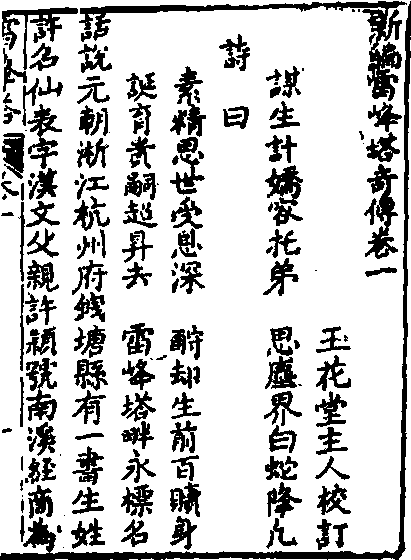 新編雷峰塔奇傳卷一
玉花堂主人校訂
謀生計嬌容托弟 思塵界白蛇降凡
詩曰
素精思世受恩深 酧却生前百贖身
誕育貴嗣超昇去 雷峰塔畔永標名
話說元朝淅江杭州府錢塘縣有一書生姓
許名仙表字漢文父親許頴號南溪經商為
雷峰塔 卷一 一